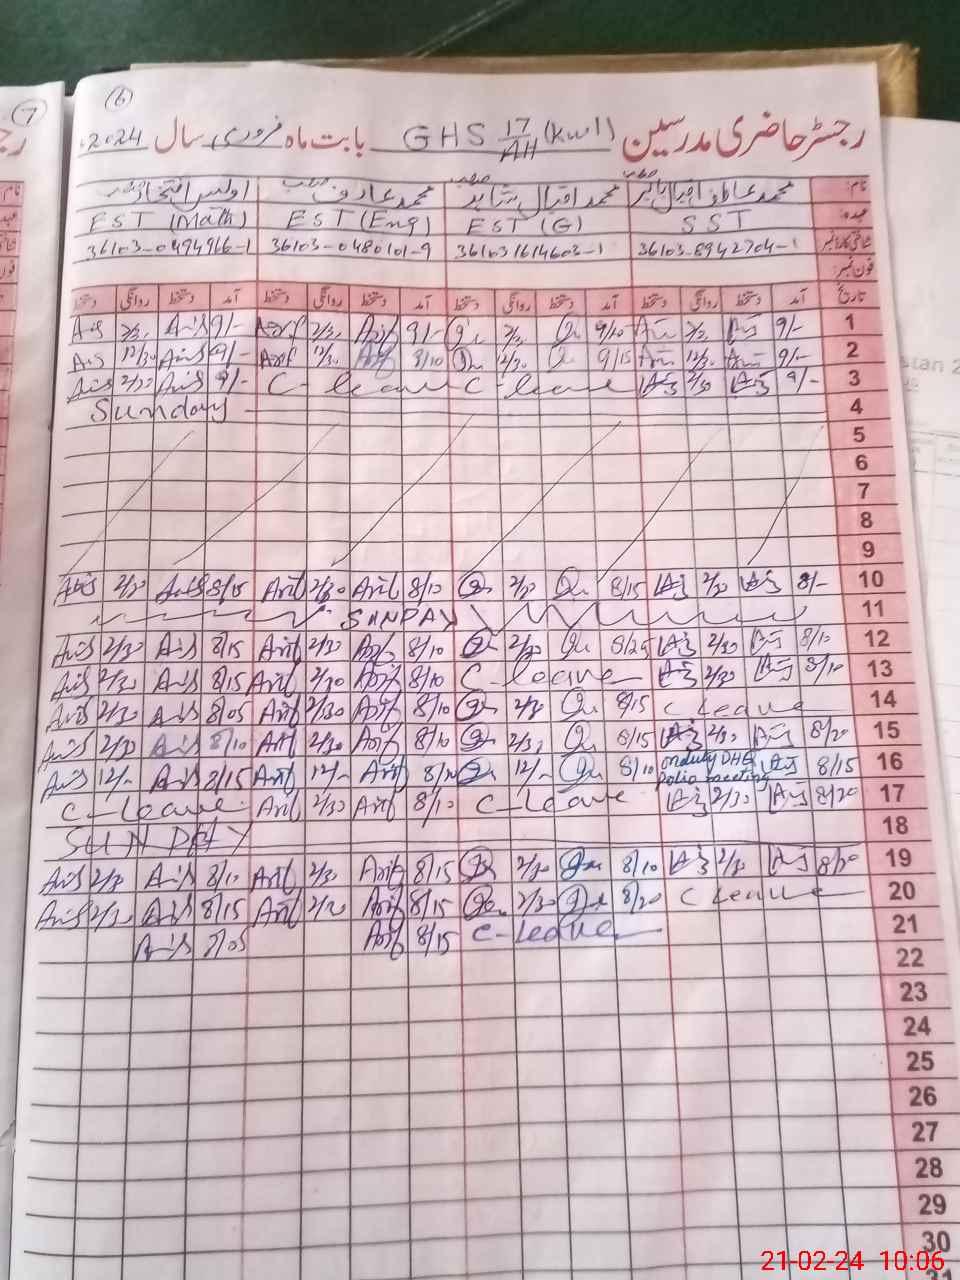 7
6
رجسٹر حاضری مدرسین GHS 17/AH (KWL) بابت ماہ فروری سال 2024
نام: محمد عاطف اقبال محمد اقبال شاہد صاحب محمد عارف صاحب اویس افتخار
عہدہ: SST EST (G) EST (Eng) EST (Math)
شناختی کارڈ نمبر 36103-8942704-1 36103-1614603-1 36103-0480101-9 36103-0494966-1
فون نمبر:
تاریخ آمد دستخط روانگی دستخط آمد دستخط روانگی دستخط آمد دستخط روانگی دستخط آمد دستخط روانگی دستخط
Anis 2/30 Anis 9/- Arif 2/30 Arif 9/- 2/30 9/10 2/30 9/- 1
Anis 12/30 Anis 9/- Arif 12/30 Arif 8/10 12/30 9/15 12/30 9/- 2
Anis 2/30 Anis 9/- C-leave C-leave 2/30 9/- 3
Sunday 4
5
6
7
8
9
Anis 2/30 Anis 8/15 Arif 2/30 Arif 8/10 2/30 8/15 2/30 8/- 10
SUNDAY 11
Anis 2/30 Anis 8/15 Arif 2/30 Arif 8/10 2/30 8/25 2/30 8/10 12
Anis 2/30 Anis 8/15 Arif 2/30 Arif 8/10 C-leave 2/30 8/10 13
Anis 2/30 Anis 8/05 Arif 2/30 Arif 8/10 2/30 8/15 C leave 14
Anis 2/30 Anis 8/10 Arif 2/30 Arif 8/10 2/30 8/15 2/30 8/20 15
Anis 12/- Anis 8/15 Arif 12/- Arif 8/20 12/- 8/10 onduty DHQ polio meeting 8/15 16
C-leave Arif 2/30 Arif 8/10 C-leave 2/30 8/20 17
SUNDAY 18
Anis 2/30 Anis 8/10 Arif 2/30 Arif 8/15 2/30 8/10 2/30 8/20 19
Anis 2/30 Anis 8/15 Arif 2/20 Arif 8/15 2/30 8/20 C leave 20
Anis 8/05 Arif 8/15 C-leave 21
22
23
24
25
26
27
28
29
30
31
21-02-24 10:06